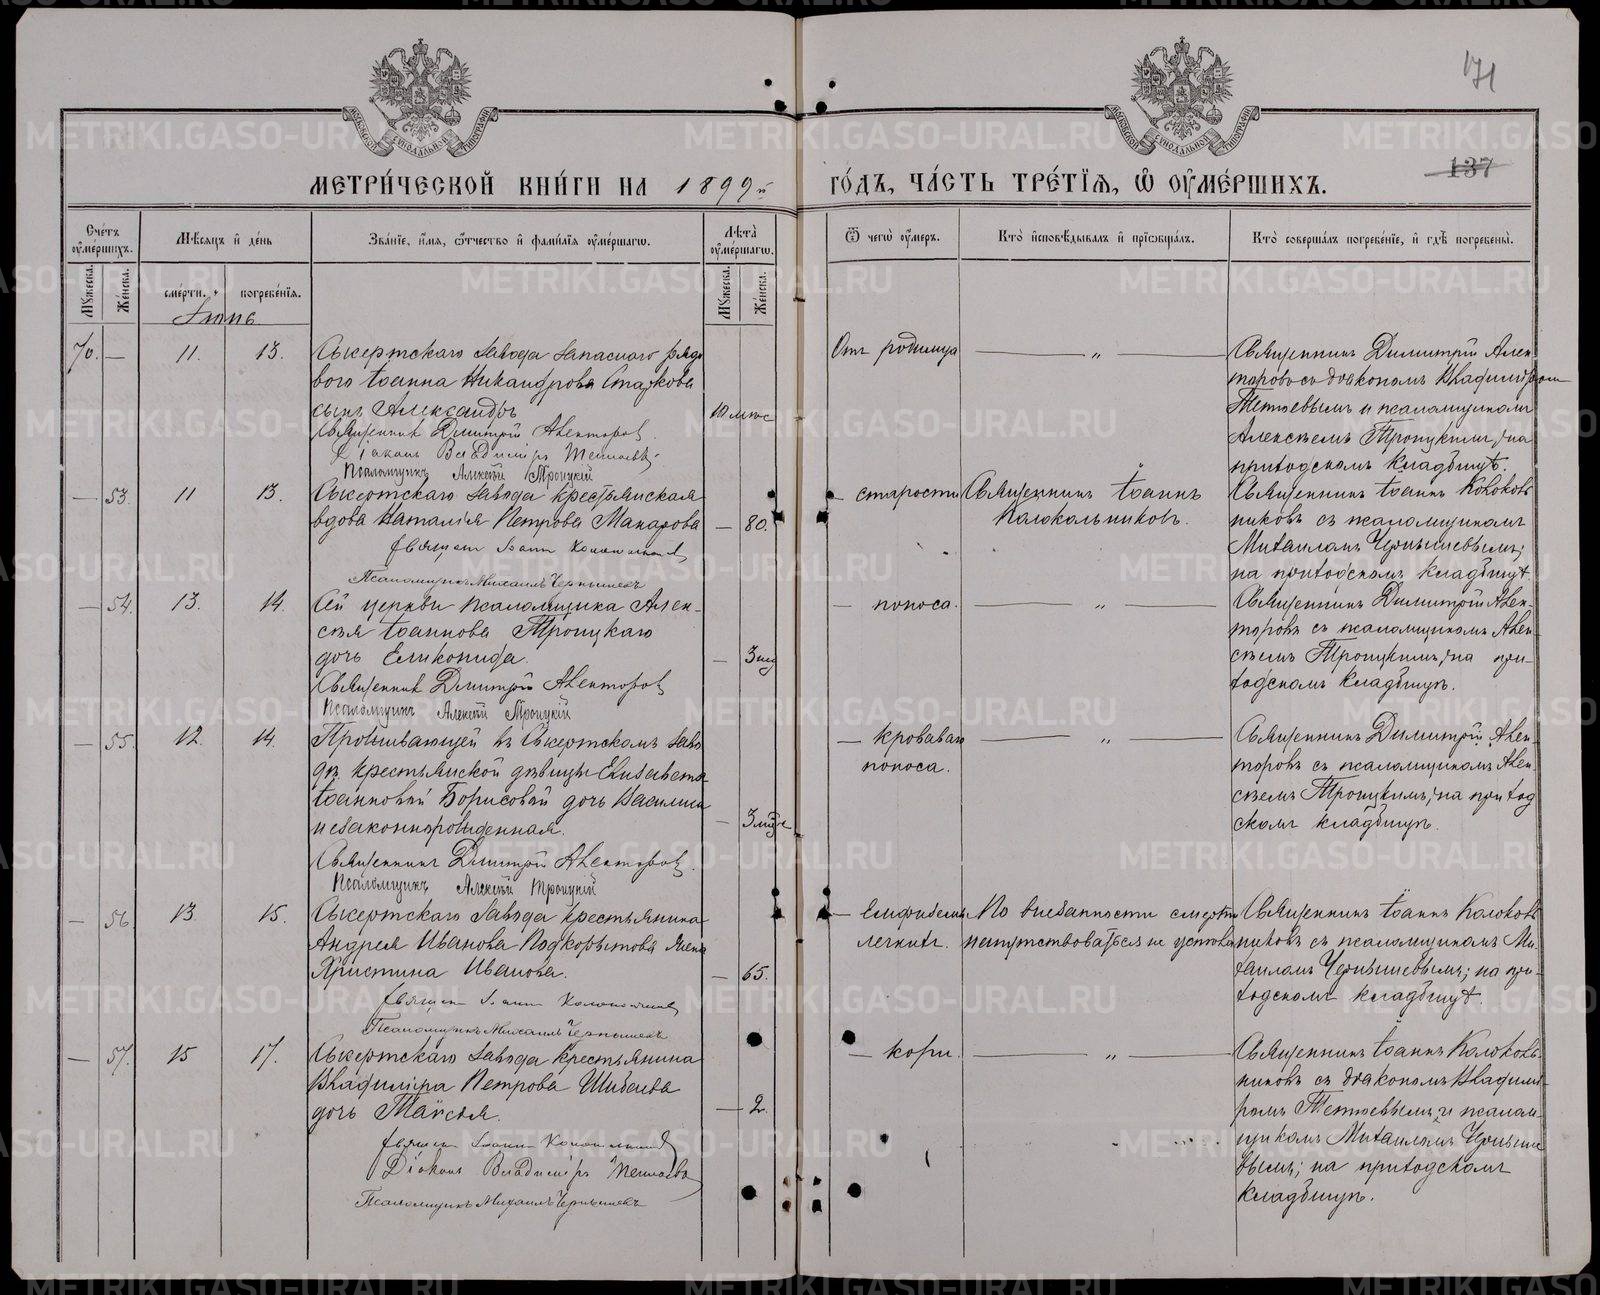 171
137
МЕТРИ́ЧЕСКОЙ КНИ́ГИ НА 1899й
ГО́ДЪ, ЧА́СТЬ ТРЕ́ТІѦ, Ѽ ОУ҆МЕ́РШИХЪ.
Сче́тъ оу҆ме́ршихъ.
Мѣ́сяцъ и҆ де́нь
Зва́нїе, и҆́мя, ѻ҆́тчество и҆ фами́лїя оу҆ме́ршагѡ.
Лѣ́та оу҆ме́ршагѡ.
Мꙋ́жеска.
Же́нска.
сме́рти.
погребе́нїя.
Мꙋ́жеска.
Же́нска.
Ѿ чегѡ̀ оу҆́меръ.
Кто̀ и҆сповѣ́дывалъ и҆ прїѡбща́лъ.
Кто̀ соверша́лъ погребе́нїе, и҆ гдѣ̀ погребены̀.
Іюнь
70. — 11. 13.
Сысертскаго завода запаснаго рядо
вого Іоанна Никандрова
сынъ Александръ
Священник Дмитрій Авекторов.
Діаконъ Владиміръ Тетюевъ
Псаломщикъ Алексѣй Троицкій
10 мѣс
Отъ родимца — „ —
Священникъ Димитрій Авек
торовъ съ діакономъ Владиміром
Тетюевымъ и псаломщикомъ
Алексѣемъ Троицкимъ; на
приходскомъ кладбищѣ.
— 53. 11 13.
Сысертскаго завода крестьянская
вдова Наталія Петрова Макарова
Священ Іоанн Колокольников
Псаломщикъ Михаилъ Чернышевъ
— 80.
— старости
Священникъ Іоаннъ
Колокольниковъ.
Священникъ Іоаннъ Коколь
никовъ съ псаломщикомъ
Михаиломъ Чернышевымъ;
на приходскомъ кладбищѣ
— 54. 13. 14.
Сей церкви псаломщика Алек-
сѣя Іоаннова Троицкаго
дочь Еликонида.
Священник Дмитрій Авекторов
Псаломщикъ Алексѣй Троицкій
— поноса. — „ —
Священникъ Димитрій Авек-
торовъ съ псаломщикомъ Алек-
сѣемъ Троицкимъ; на при-
ходскомъ кладбищѣ.
— 55. 12. 14.
Проживающей въ Сысертскомъ заво
дѣ крестьянской дѣвицы Елизаветы
Іоанновой Борисовой дочь
незаконнорожденная.
Священникъ Дмитрій Авекторов.
Псаломщикъ Алексѣй Троицкій
— кроваваго
поноса. — „ —
Священникъ Димитрій Авек-
торовъ съ псаломщикомъ Алек-
сѣемъ Троицкимъ; на приход
скомъ кладбищѣ.
— 56 13. 15.
Сысертскаго завода крестьянина
Андрея Иванова Подкорытова жена
Христина Иванова.
Священ Іоанн Колокольников
Псаломщикъ Михаилъ Чернышевъ
— 65.
легкихъ.
По внезапности смерти
напутствоваться не успѣла
Священникъ Іоаннъ Колоколь
никовъ съ псаломщикомъ Ми-
хаиломъ Чернышевымъ; на при-
ходскомъ кладбищѣ.
— 57. 15 17.
Сысертскаго завода крестьянина
Владиміра Петрова Шибаева
дочь Таисія.
Священ Іоанн Колокольников
Діаконъ Владиміръ Тетюевъ
Псаломщикъ Михаилъ Чернышевъ
— 2.
— кори. — „ —
Священникъ Іоаннъ Колоколь-
никовъ съ діакономъ Владимі-
ромъ Тетюевымъ и псалом-
щикомъ Михаиломъ Черныше
вымъ; на приходскомъ
кладбищѣ.
METRIKI.GASO-URAL.RU